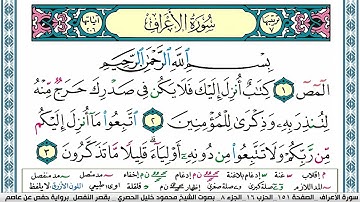 ترتيبها ٧
سُورَةُ الأَعْرَافِ
آياتها ٢٠٦
بِسْمِ ٱللَّهِ ٱلرَّحْمَٰنِ ٱلرَّحِيمِ
الٓمٓصٓ ١ كِتَٰبٌ أُنزِلَ إِلَيْكَ فَلَا يَكُن فِى صَدْرِكَ حَرَجٌ مِّنْهُ
لِتُنذِرَ بِهِۦ وَذِكْرَىٰ لِلْمُؤْمِنِينَ ٢ ٱتَّبِعُوا۟ مَآ أُنزِلَ إِلَيْكُم
مِّن رَّبِّكُمْ وَلَا تَتَّبِعُوا۟ مِن دُونِهِۦٓ أَوْلِيَآءَ ۗ قَلِيلًا مَّا تَذَكَّرُونَ ٣
سورة الاعراف الصفحة ١٥١ الحزب ١٦ الجزء ٨ بصوت الشيخ محمود خليل الحصري بقصر المنفصل برواية حفص عن عاصم